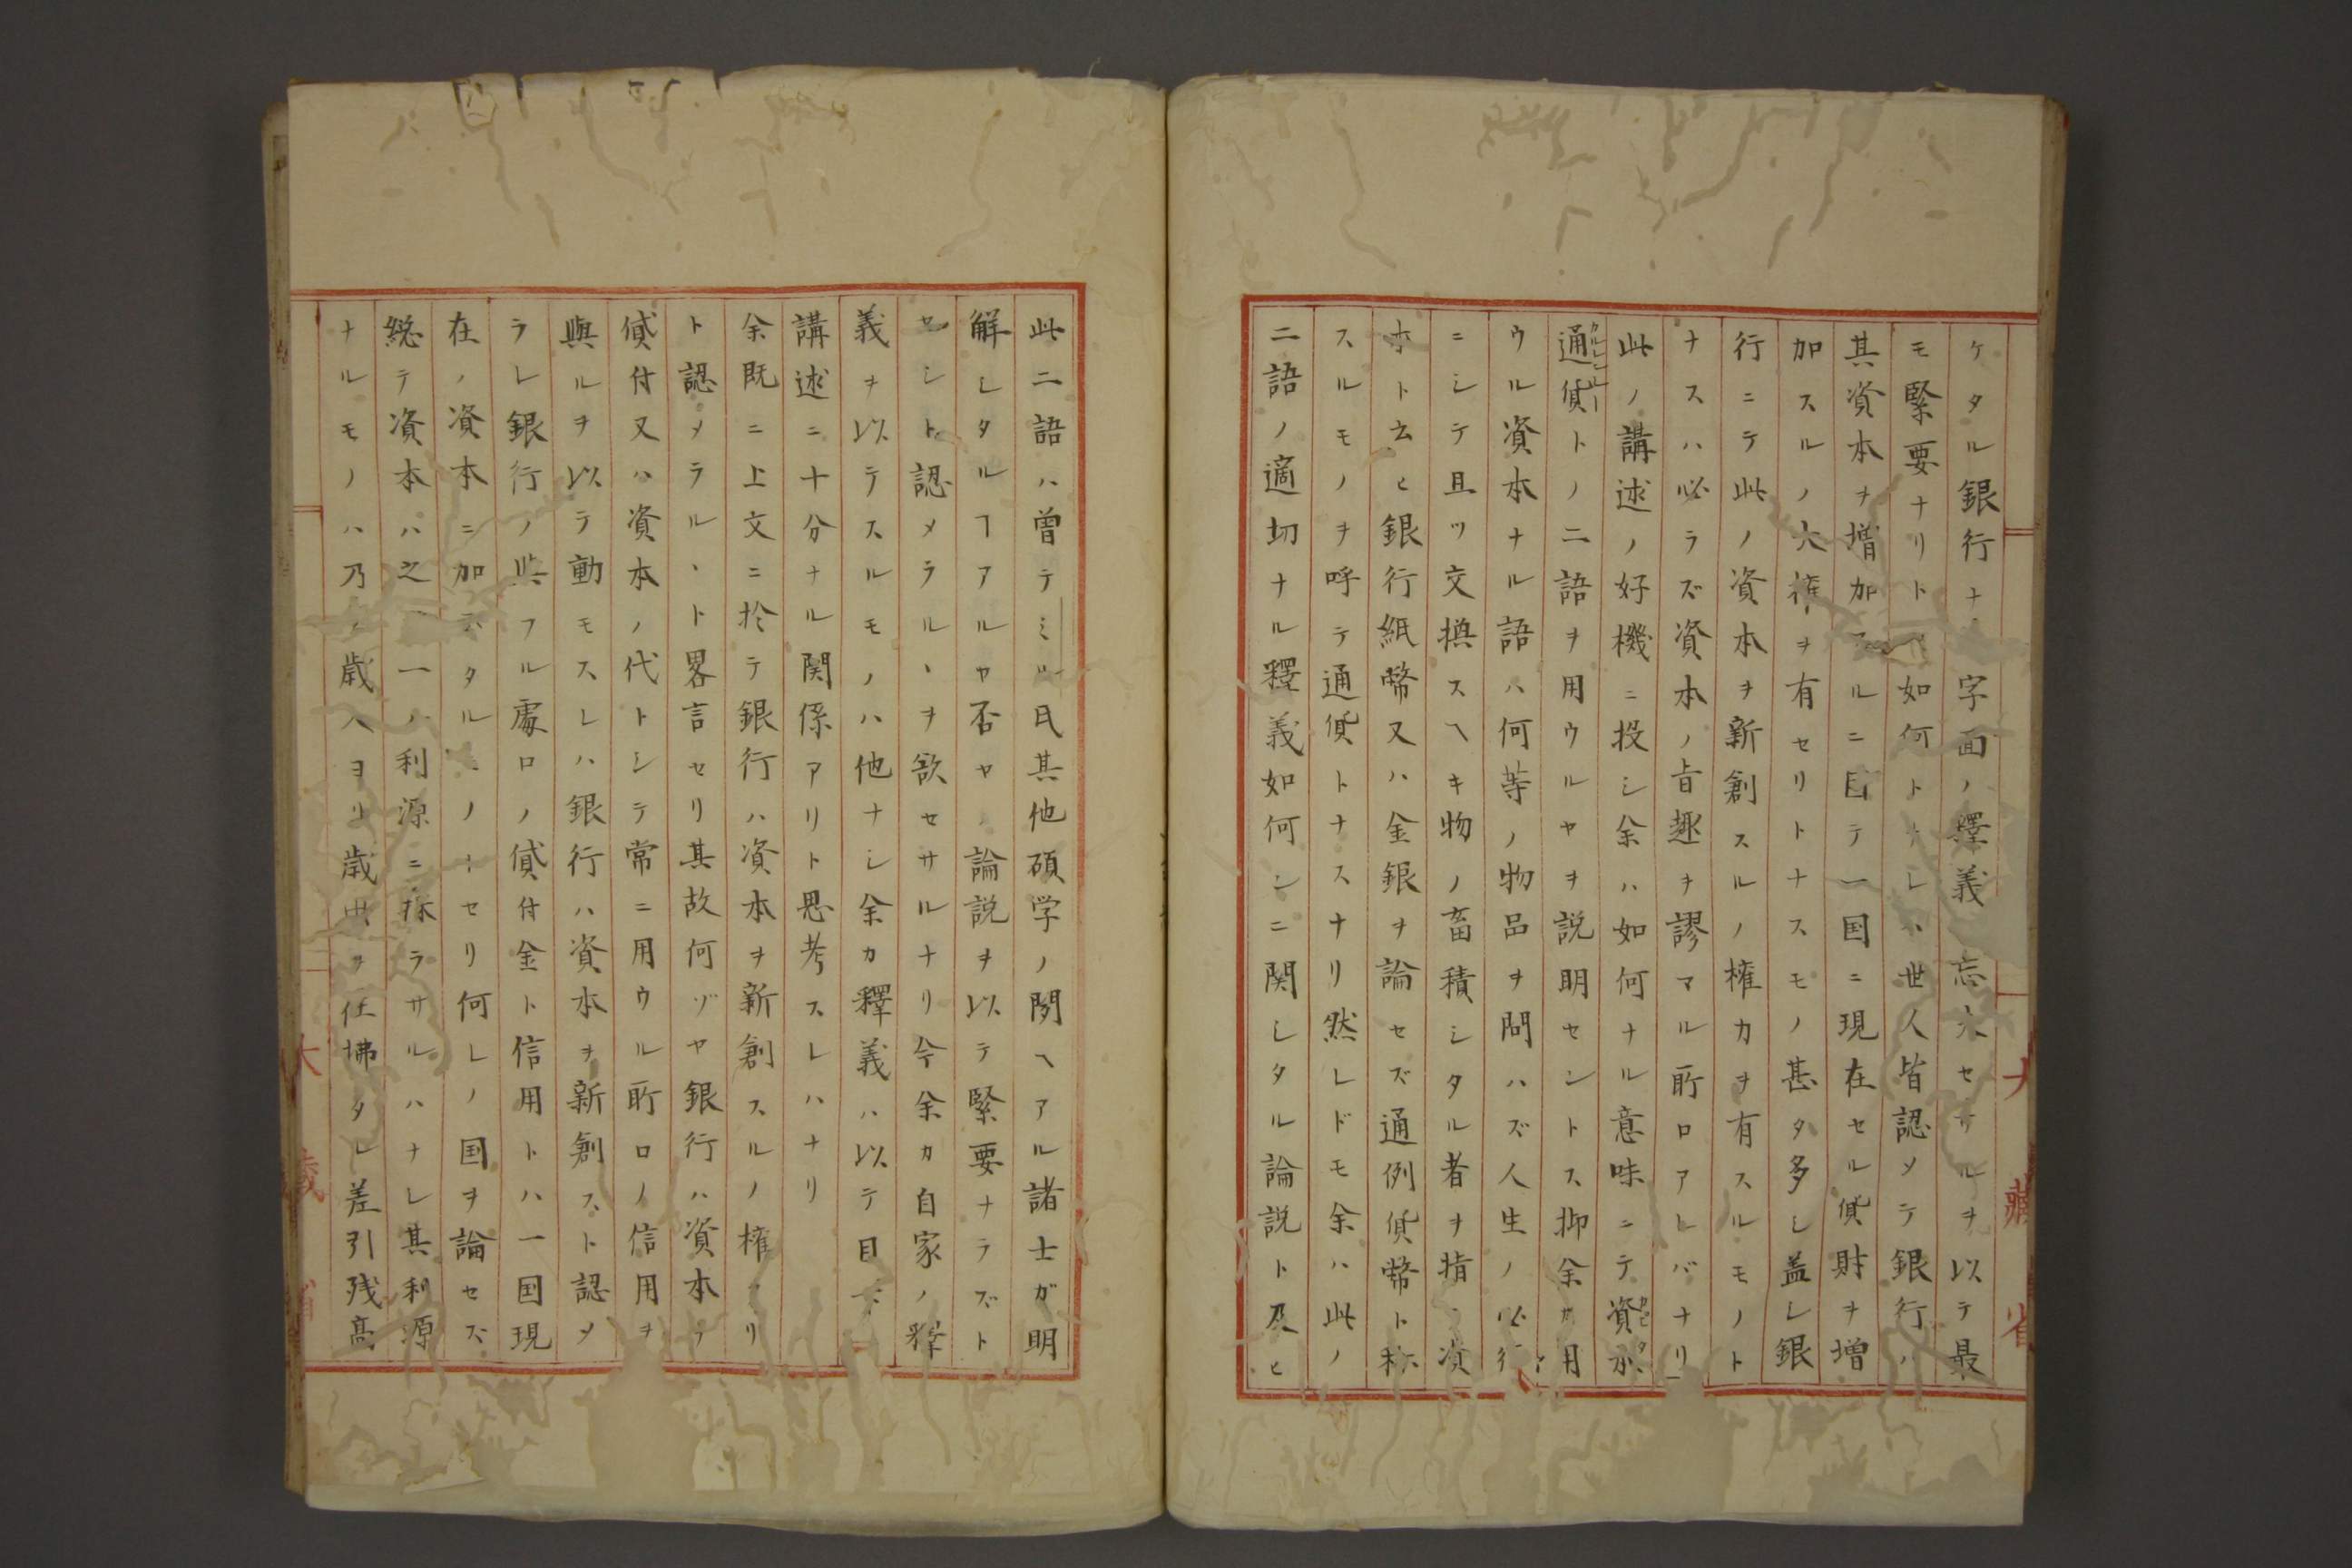 ケタル銀行ナ字面ノ釋義忘大セサルヲ以テ最
モ緊要ナリト如何トナレハ世人皆認メテ銀行ハ
其資本ヲ増加スルニ因テ一国ニ現在セル貨財ヲ増
加スルノ大権ヲ有セリトナスモノ甚タ多シ益シ銀
行ニテ此ノ資本ヲ新創スルノ権力ヲ有スルモノト
ナスハ必ラズ資本ノ旨趣ヲ謬マル所ロアレバナリ
此ノ講述ノ好機ニ投シ余ハ如何ナル意味ニテ資本
通貨トノ二語ヲ用ウルヤヲ説明セントス抑余カ用
ウル資本ナル語ハ何等ノ物品ヲ問ハズ人生ノ必行
ニシテ且ツ交換スヘキ物ノ畜積シタル者ヲ指シ資
本ト云ヒ銀行紙幣又ハ金銀ヲ論セズ通例貨幣ト称
スルモノヲ呼テ通貨トナスナリ然レドモ余ハ此ノ
二語ノ適切ナル釋義如何ンニ関シタル論説ト及ヒ
大藏省
此二語ハ曽テミル氏其他碩学ノ聞ヘアル諸士ガ明
解シタルヿアルヤ否ヤノ論説ヲ以テ緊要ナラズト
セシト認メラルヽヲ欲セサルナリ今余カ自家ノ釋
義ヲ以テスルモノハ他ナシ余カ釋義ハ以テ目下
講述ニ十分ナル関係アリト思考スレハナリ
余既ニ上文ニ於テ銀行ハ資本ヲ新創スルノ権アリ
ト認メラルヽト畧言セリ其故何ゾヤ銀行ハ資本ヲ
貸付又ハ資本ノ代トシテ常ニ用ウル所ロノ信用ヲ
與ルヲ以テ動モスレハ銀行ハ資本ヲ新創スト認メ
ラレ銀行ノ與フル處ロノ貸付金ト信用トハ一国現
在ノ資本ニ加ヘタルモノトセリ何レノ国ヲ論セズ
総テ資本ハ之一ハ利源ニ採ラサルハナレ其利源
ナルモノハ乃ノ歳入ヨリ歳出ヲ仕拂タレ差引残高
大藏省